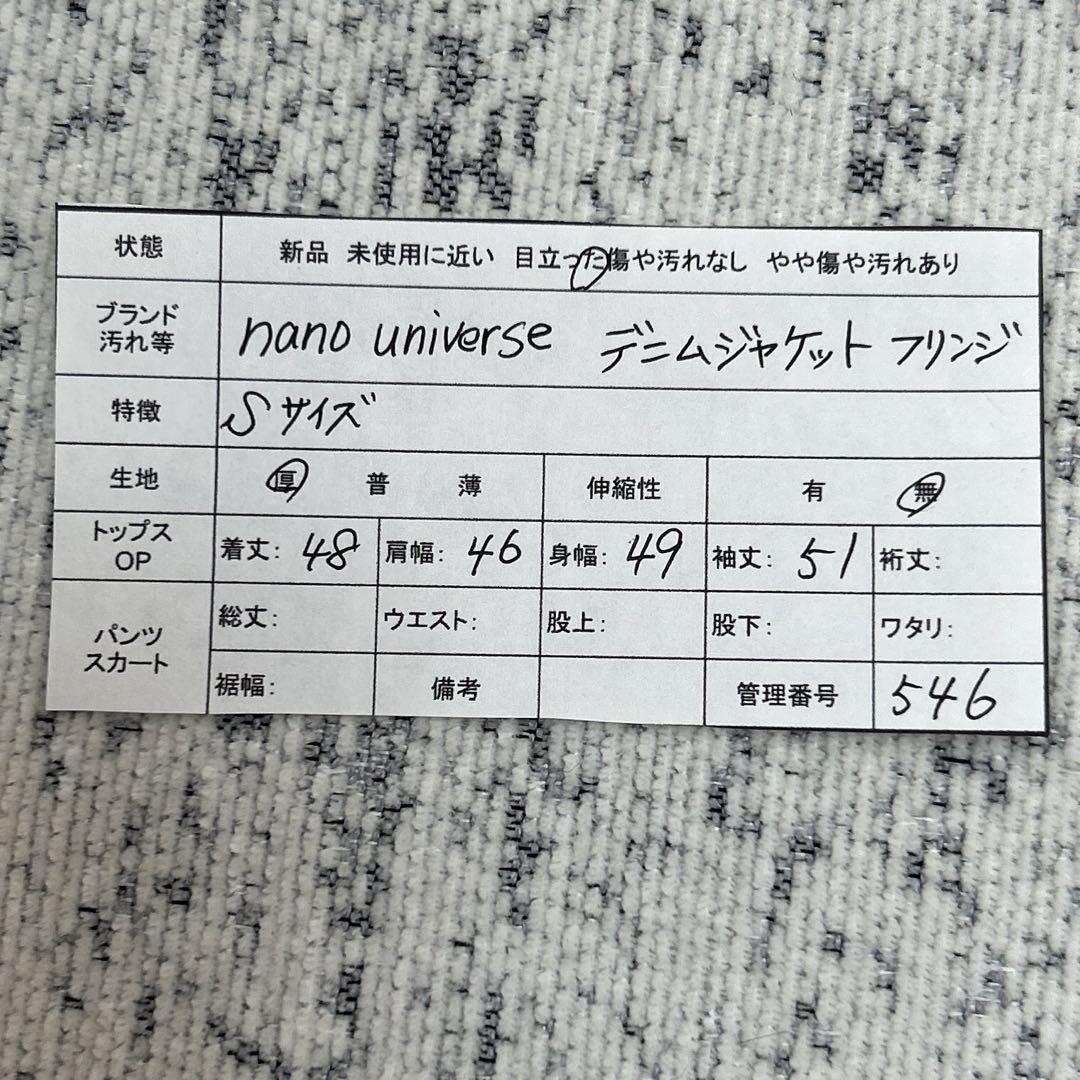 状態 新品 未使用に近い 目立った傷や汚れなし やや傷や汚れあり
ブランド
汚れ等 nano universe デニムジャケット フリンジ
特徴 Sサイズ
生地 厚 普 薄 伸縮性 有 無
トップス
OP 着丈: 48 肩幅: 46 身幅: 49 袖丈: 51 裄丈:
パンツ
スカート 総丈: ウエスト: 股上: 股下: ワタリ:
裾幅: 備考 管理番号 546